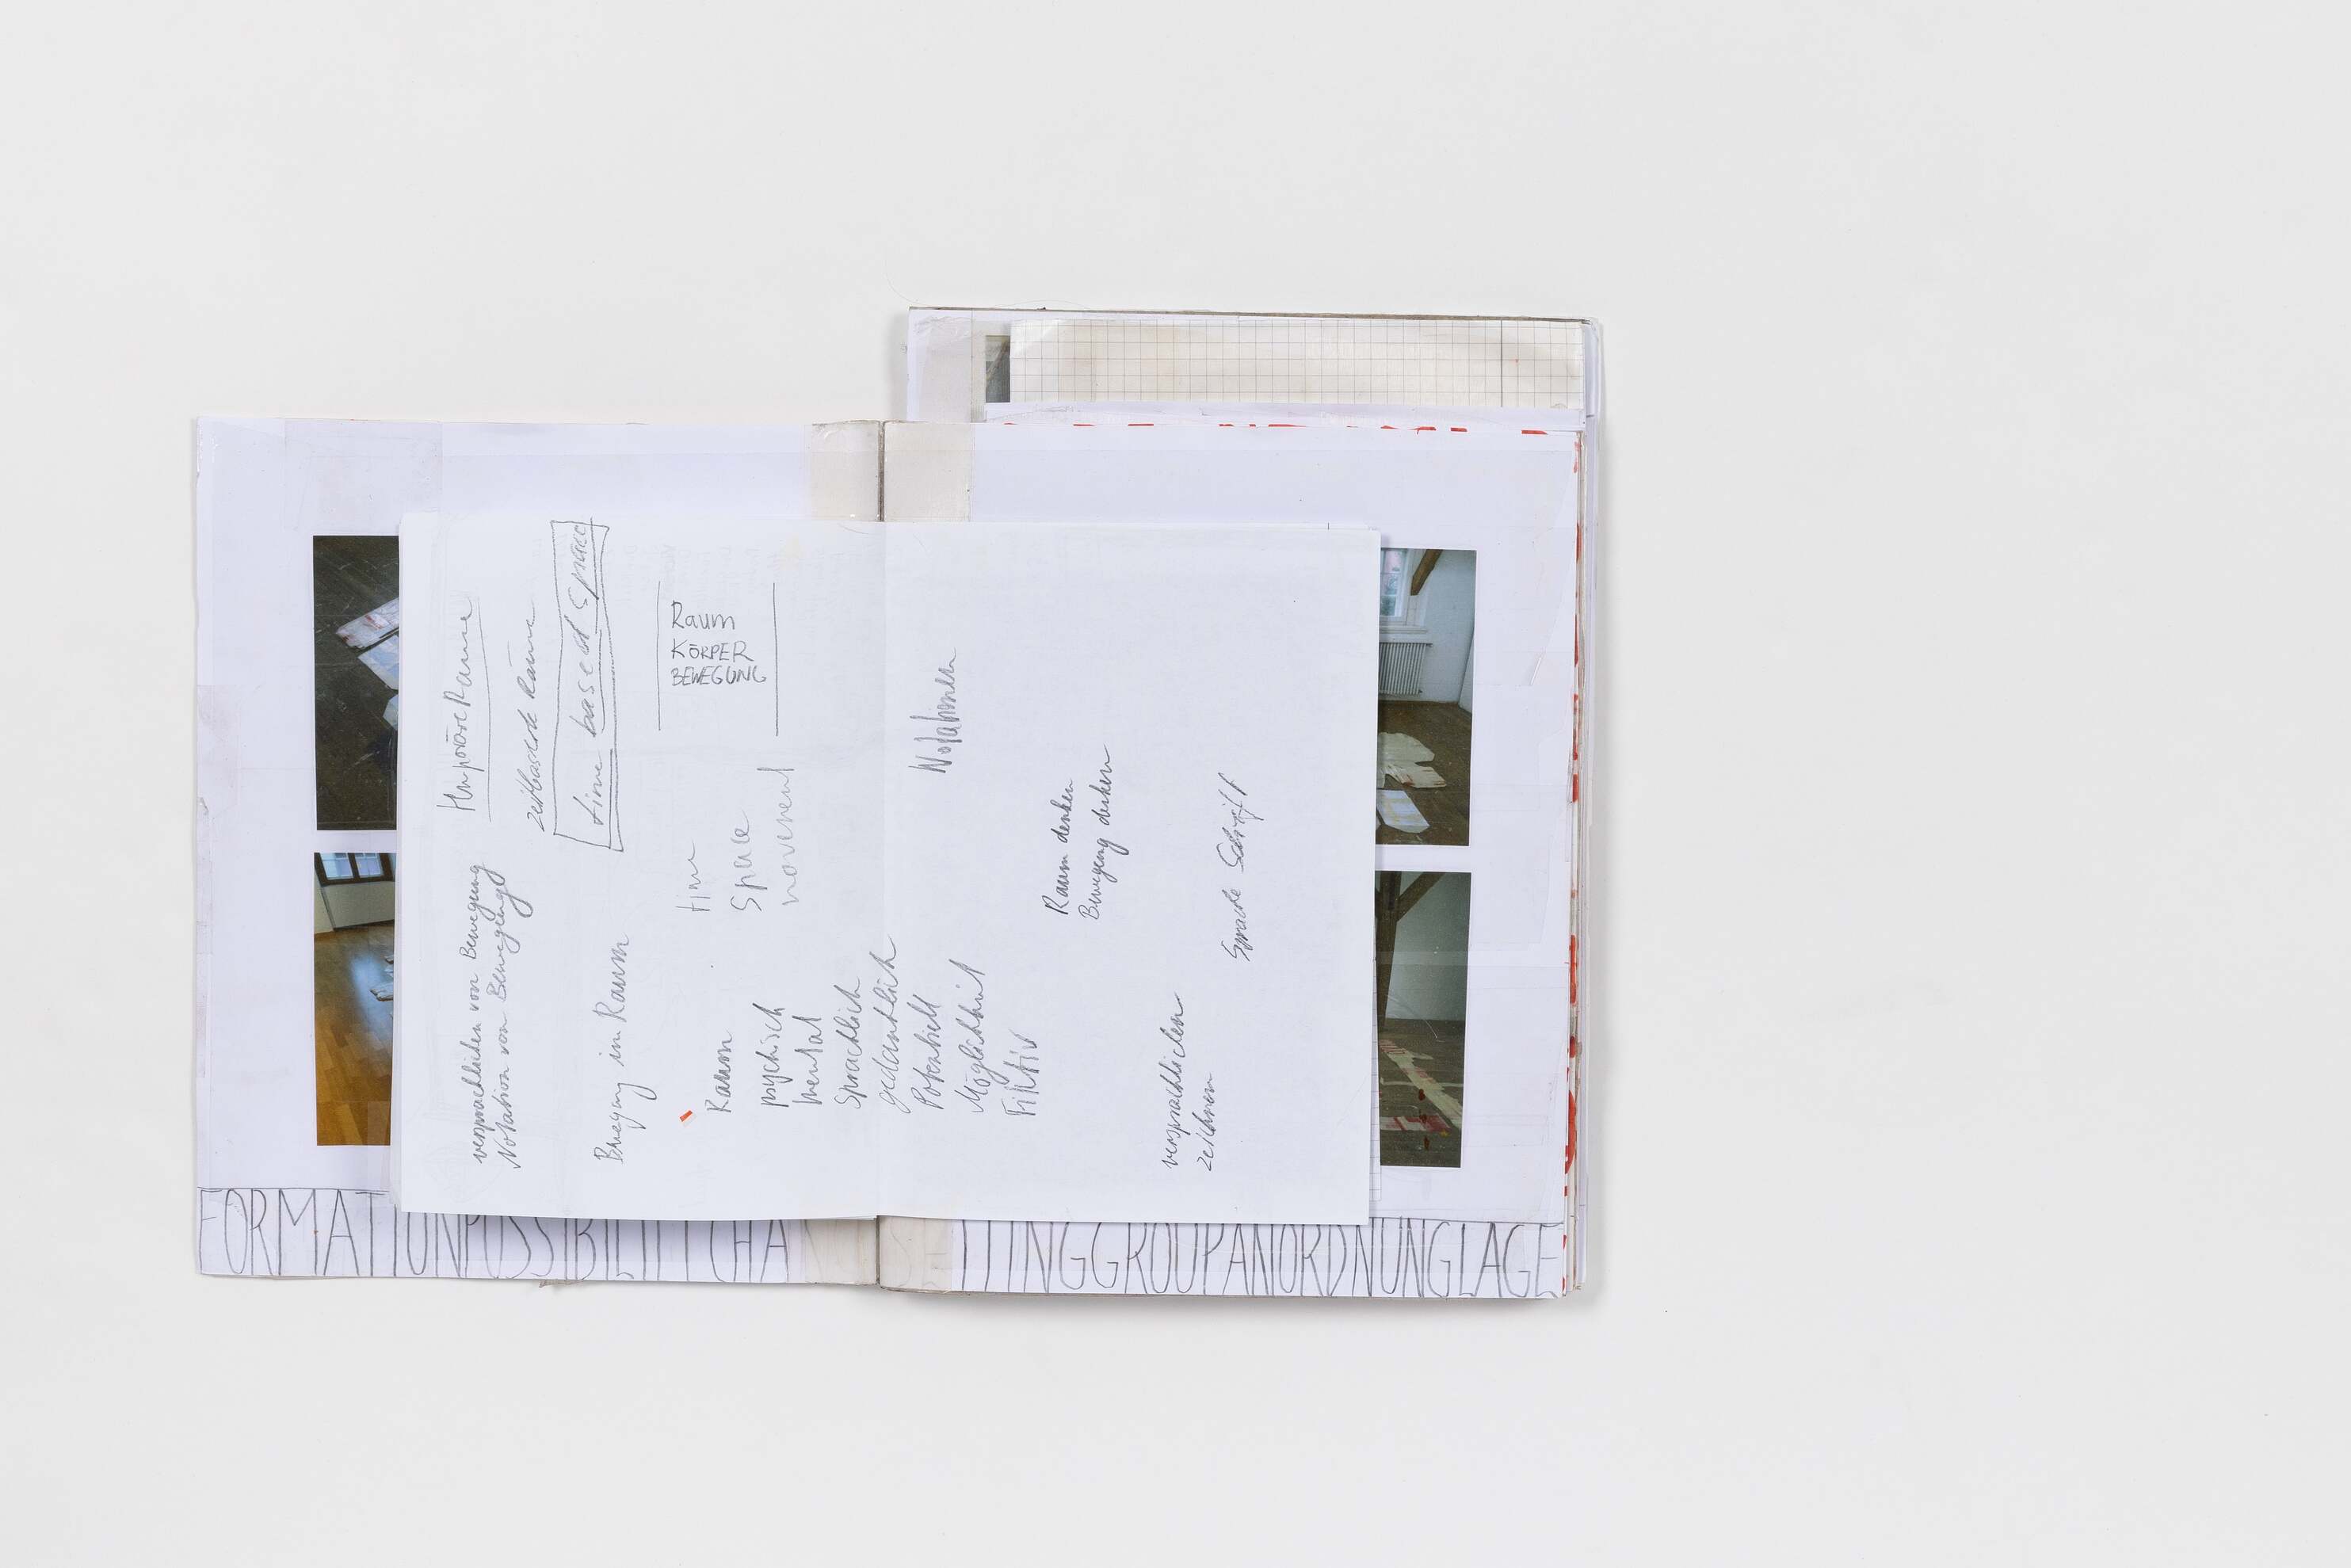 temporäre Räume
zeitbasierte Räume
time based Space
versprachlichen von Bewegung
Notation von Bewegung
Bewegung im Raum
Raum
KÖRPER
BEWEGUNG
time
Space
movement
Raum
psychisch
mental
Sprachlich
gedanklich
Potentiell
Möglichkeit
Fiktiv
Notationen
Raum denken
Bewegung denken
Sprache Schrift
versprachlichen
zeichnen
FORMATIONPOSSIBILITYCHA
TTINGGROUPANORDNUNGLAGE